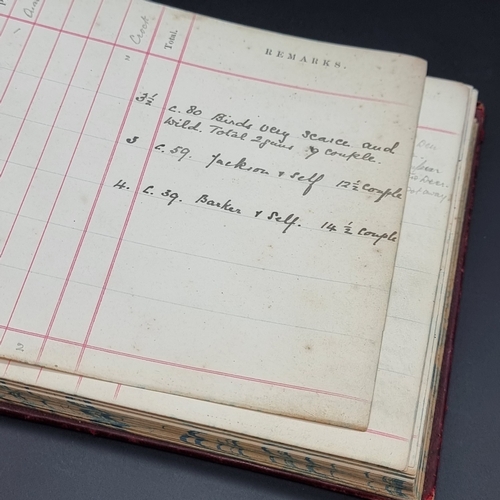 Crook
Total.
REMARKS.
3½ C. 80 Birds very scarce and
Wild. Total 2guns 9 couple.
3 C. 59. Jackson & Self 12½ couple
4. C. 39. Barker & Self. 14½ Couple